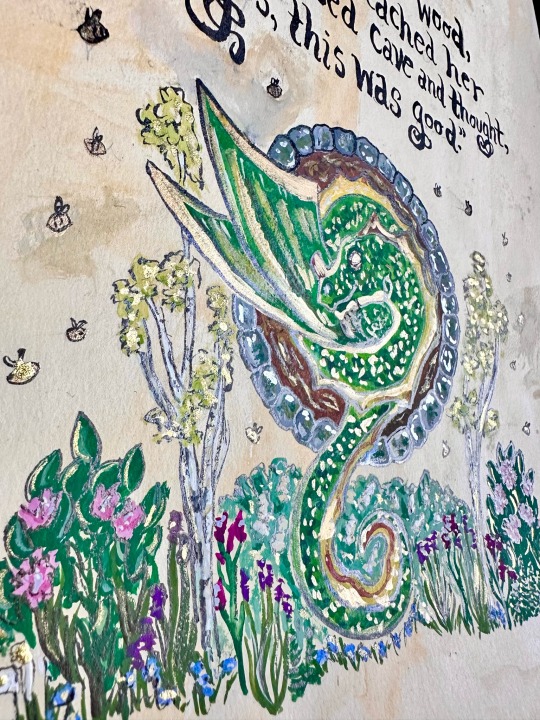 wood,
reached her
cave and thought,
this was good."